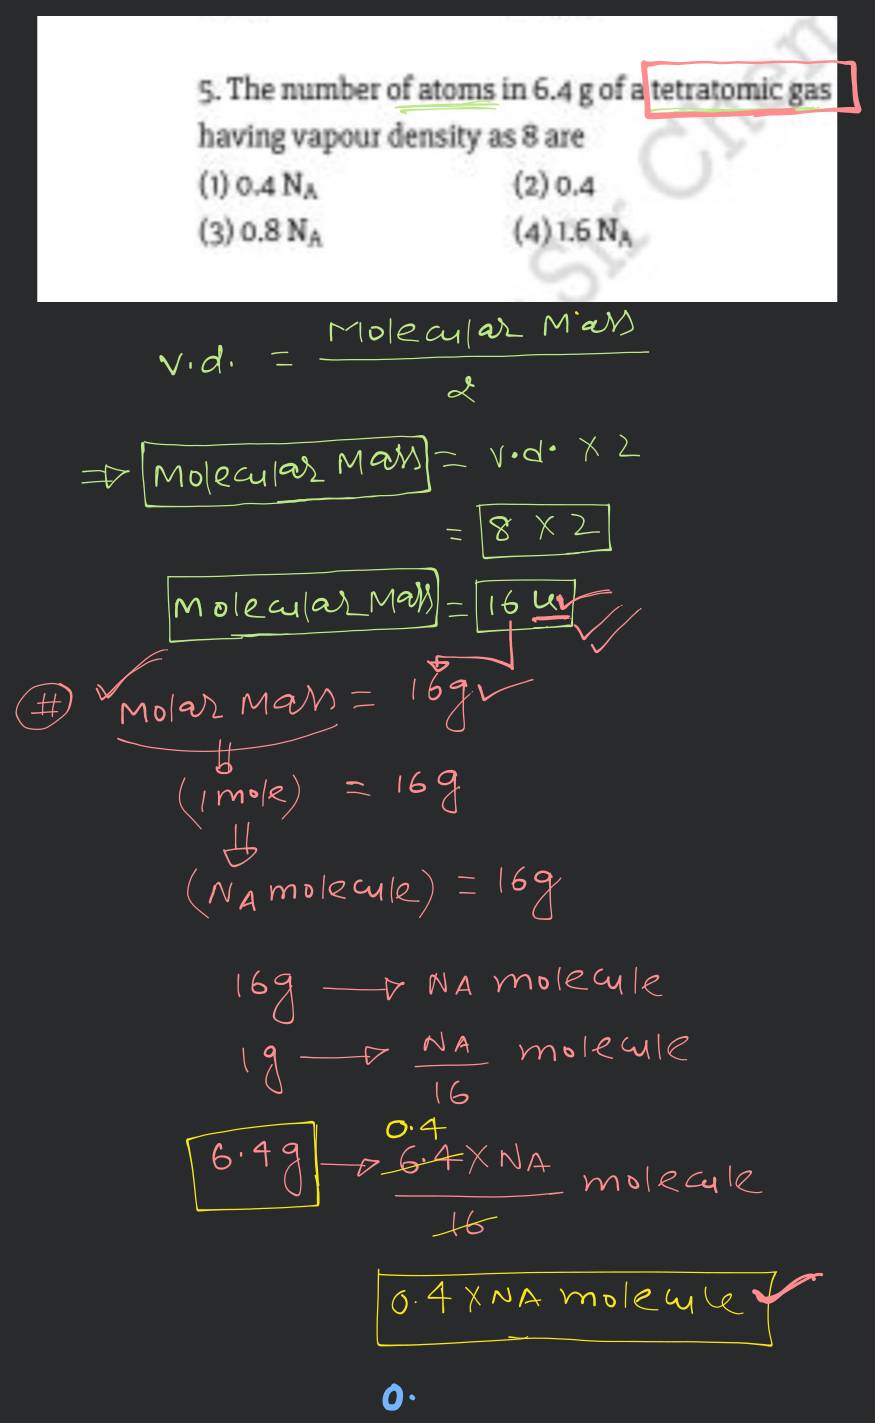 5. The number of atoms in 6.4 g of a tetratomic gas
having vapour density as 8 are
(1) 0.4 NA (2) 0.4
(3) 0.8 NA (4) 1.6 NA
Sir Chem
v.d. = Molecular Mass
2
⇒ Molecular Mass = v.d. × 2
= 8 × 2
Molecular Mass = 16 u
# Molar Mass = 16g
(1 mole) = 16g
(NA molecule) = 16g
16g → NA molecule
1g → NA molecule
16
0.4
6.4g → 6.4 × NA molecule
16
0.4 × NA molecule
0.